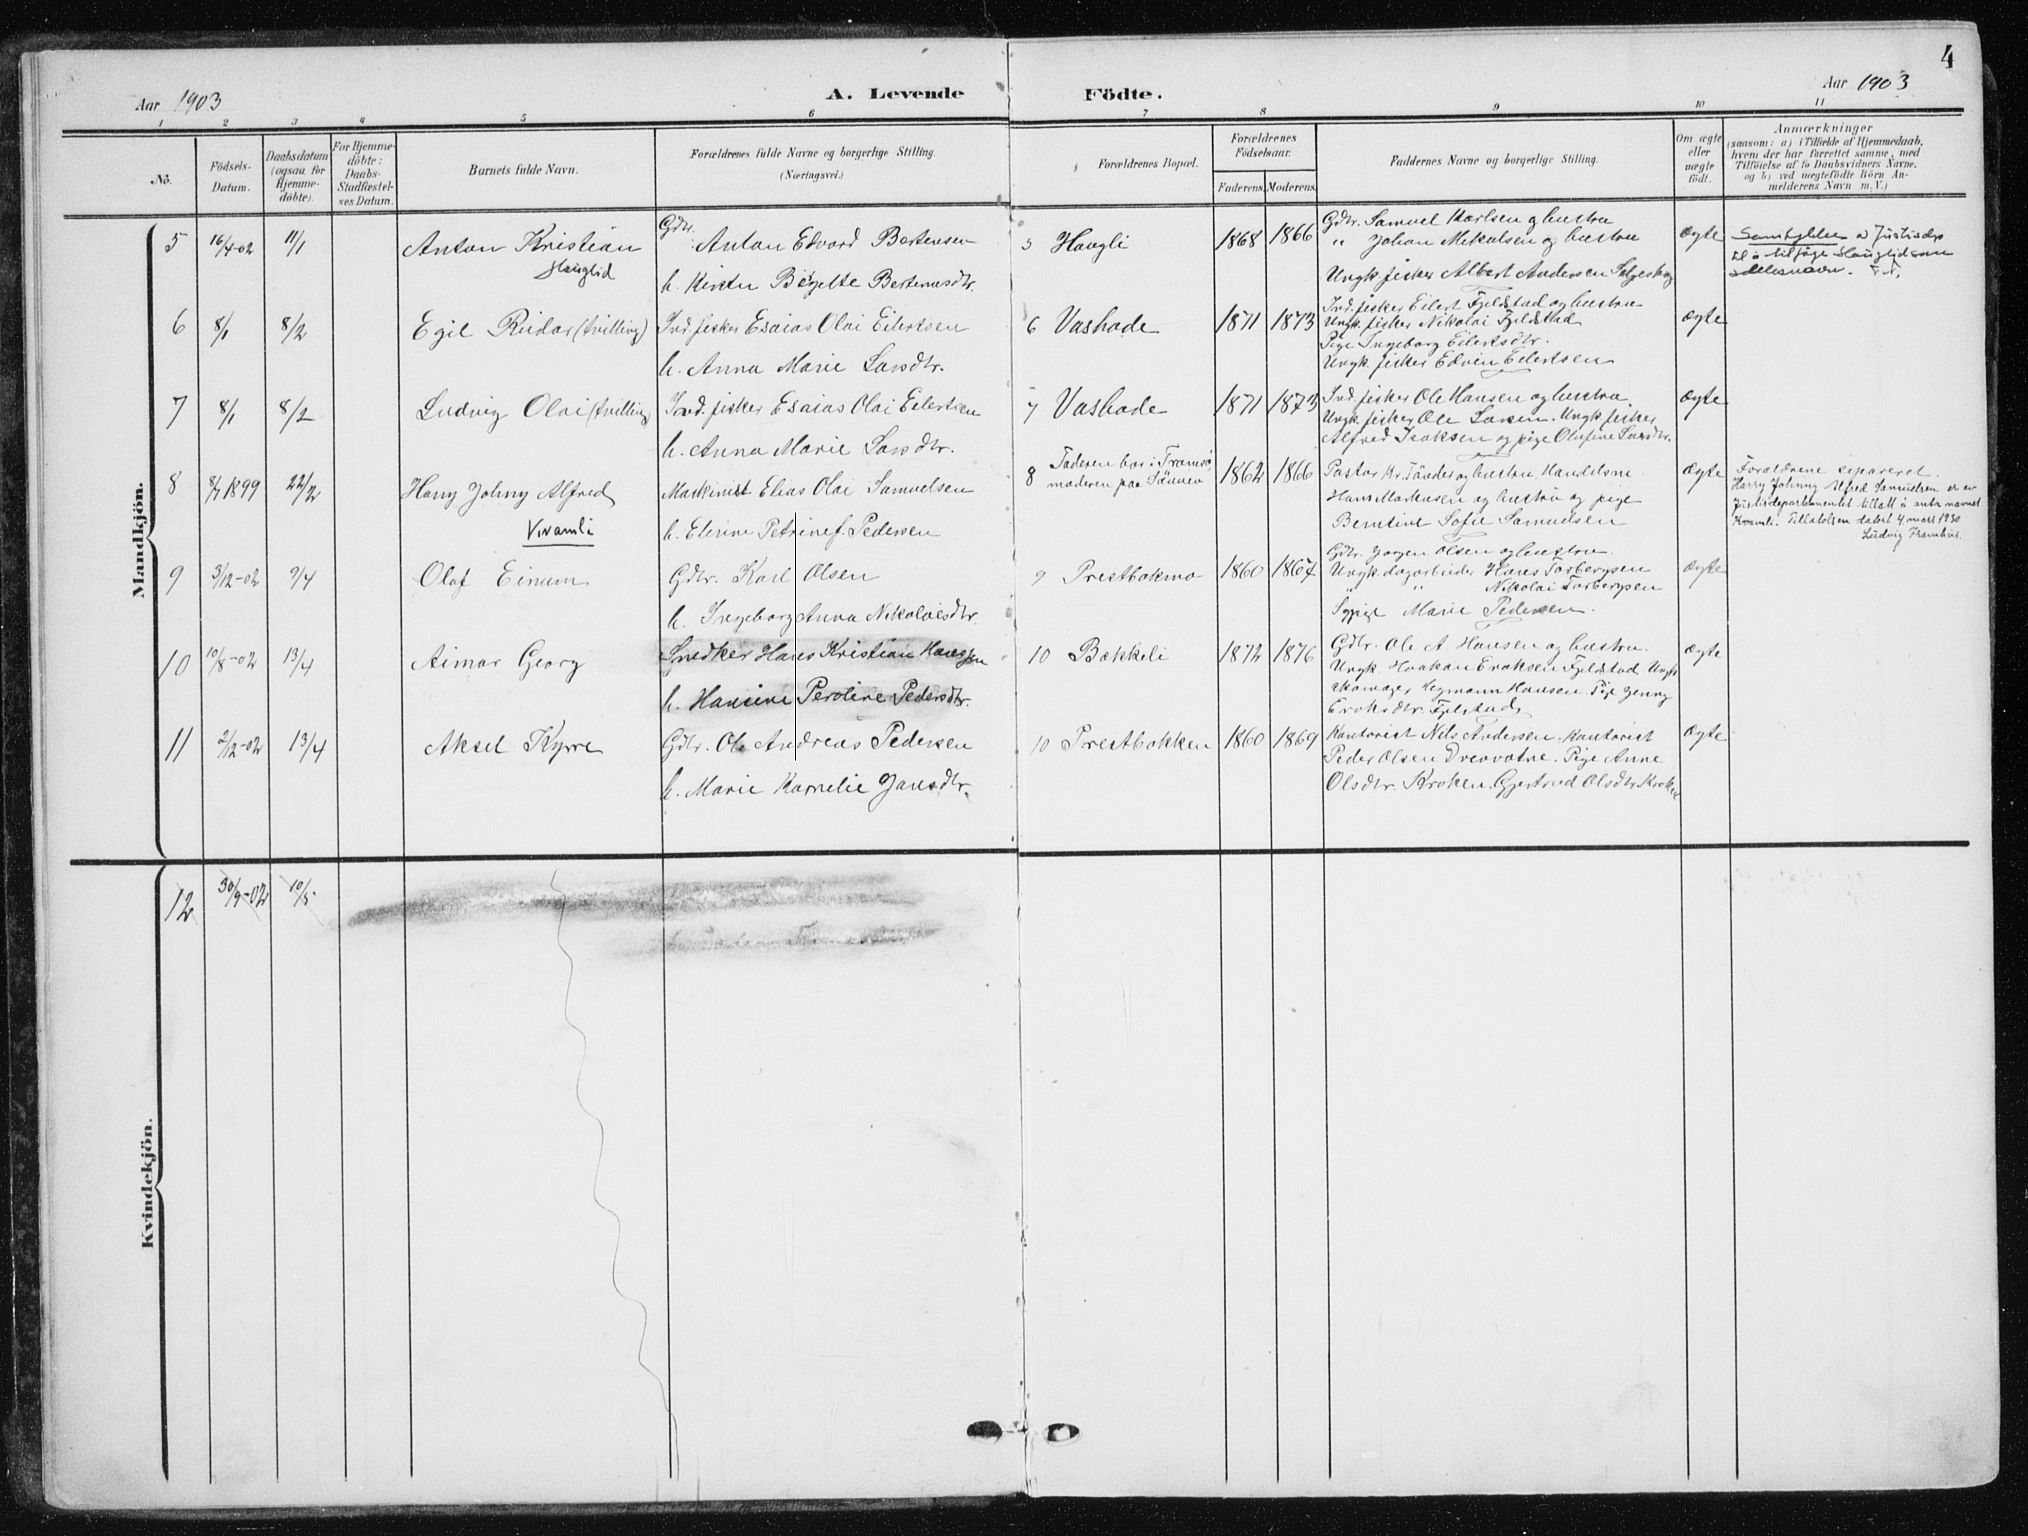 4
Aar 1903
A. Levende
Födte.
Aar 1903
1 2 3 4 5 6 7 8 9 10 11
No.
Födsels-Datum.
Daabsdatum (ogsaa for Hjemme-döbte).
For Hjemme-döbte: Daabs-Stadfæstel-ses Datum.
Barnets fulde Navn.
Forældrenes fulde Navne og borgerlige Stilling.
(Næringsvei.)
Forældrenes Bopæl.
Forældrenes Födselsaar.
Faderens.
Moderens.
Faddernes Navne og borgerlige Stilling.
Om ægte eller uægte födt.
Anmærkninger
(saasom: a) i Tilfælde af Hjemmedaab,
hvem der har forrettet samme, med
Tilföielse af to Daabsvidners Navne,
og b) ved uægtefödte Börn An-
melderens Navn m. V.)
Mandkjön.
5 16/4-02 11/1 Anton Kristian
Hauglid
Gdbr. Anton Edvard Bertensen
h. Kirsten Birgitte Berteusdtr.
5 Haugli 1868 1866
Gdbr. Samuel Karlsen og hustru
" Johan Mikalsen og hustru
Ungk. fisker Albert Andersen
ægte
Samtykke
til å tilføye Hauglid som
6 8/1 8/2 Egil Reidar (tvilling)
Ind. fisker Esaias Olai Eilertsen
h. Anna Marie Larsdtr.
6 Vashode 1871 1873
Ind. fisker Eilert Fjeldstad og hustru
Ungk. fisker Nikolai Fjeldstad
Pige Ingeborg Eilertsdtr.
Ungk. fisker Edvin Eilertsen
ægte
7 8/1 8/2 Ludvig Olai (tvilling)
Ind. fisker Esaias Olai Eilertsen
h. Anna Marie Larsdtr.
7 Vashode 1871 1873
Ind. fisker Ole Hansen og hustru
Ungk. fisker Ole Larsen. Ungk. fisker
Alfred Isaksen og pige Olufine Larsdtr.
ægte
8 8/7 1899 22/2 Harry Johny Alfred
Kvamli
Maskinist Elias Olai Samuelsen
h. Elerine Petrine f. Pedersen
8 Faderen bor i Tromsø,
moderen paa Sånnen
1862 1866
Pastor Kr. Tönder og hustru. Handelsm.
Hans Markusen og hustru og pige
Berntine Sofie Samuelsen
ægte
Forældrene separeret.
Harry Johnny Alfred Samuelsen er av
Justisdepartementet tillatt å anta navnet
Kvamli. Tillatelsen datert 4 mars 1930
Ludvig Framhus.
9 3/12-02 9/4 Olaf Einum
Gdbr. Karl Olsen
h. Ingeborg Anna Nikolaisdtr.
9 Prestbakmo 1860 1867
Gdbr. Jørgen Olsen og hustru.
Ungk. dagarbeider Hans Torbergsen
" " Nikolai Torbergsen
Sypige Marie Pedersen.
ægte
10 10/8-02 13/4 Aimar Georg
Snedker Hans Kristian Hanssen
h. Hansine Peroline Pedersdtr.
10 Bækkeli 1872 1876
Gdbr. Ole A. Hansen og hustru.
Ungk. Haakon Enoksen Fjeldstad Ungk
skomager Hegmann Hansen. Pige Jenny
Enoksdtr. Fjeldstad
ægte
11 2/12-02 13/4 Aksel Kyrre
Gdbr. Ole Andreas Pedersen
h. Marie Kornelie Jansdtr.
10 Prestbakken 1860 1869
Kontorist Nils Andersen. Kontorist
Peder Olsen Drevvatne. Pige Anne
Olsdtr. Kroken. Gjertrud Olsdtr. Kroken
ægte
Kvindekjön.
12 30/9-02 10/5